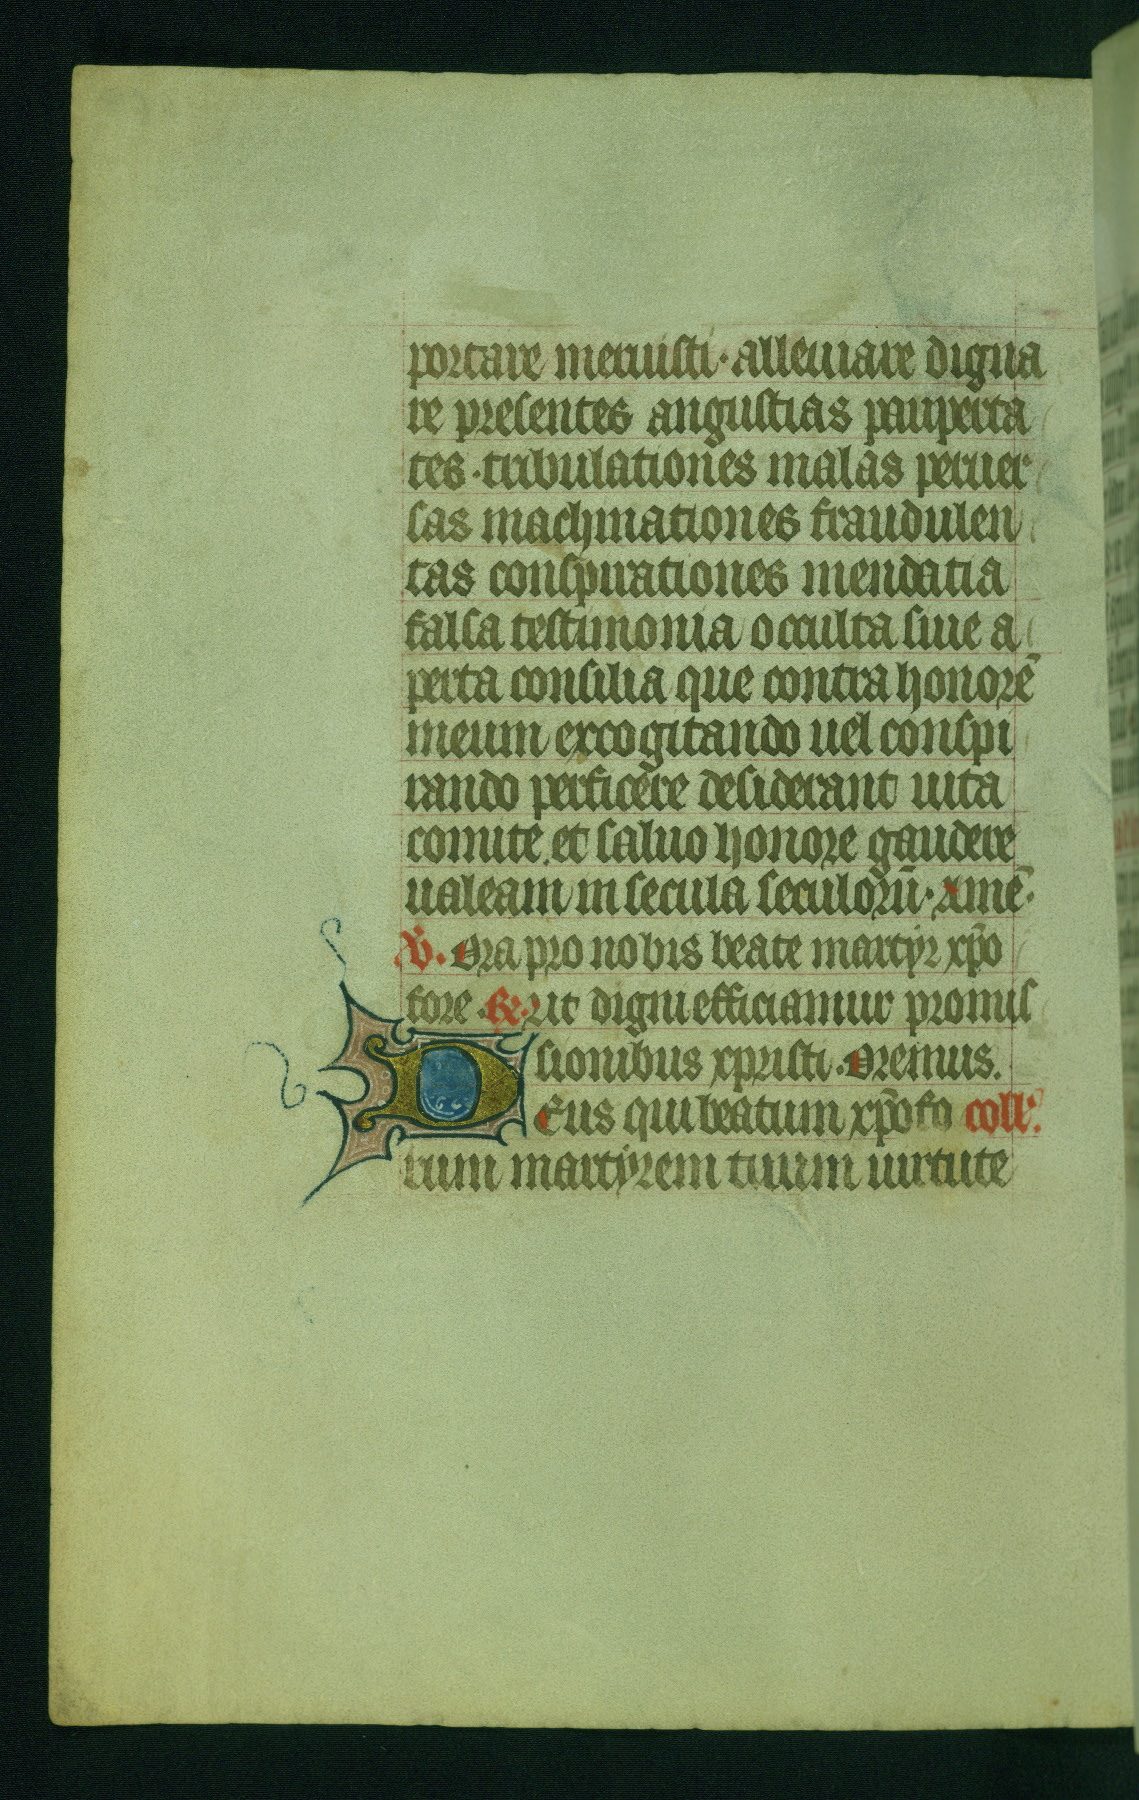 portare meruisti · alleuiare digna
re presentes angustias pauperta
tes · tribulationes malas peruer
sas machinationes fraudulen
tas conspirationes mendatia
falsa testimonia occulta siue a
perta consilia que contra honorē
meum excogitando uel conspi
rando perficere desiderant uita
comite et saluo honore gaudere
ualeam in secula seculorū · Amē ·
V̄. Ora pro nobis beate martyr xp̄o
fore · R̄. Ut digni efficiamur promis
sionibus xpristi · Oremus.
DEus qui beatum xp̄ofo coll'.
rum martyrem tuum uirtute